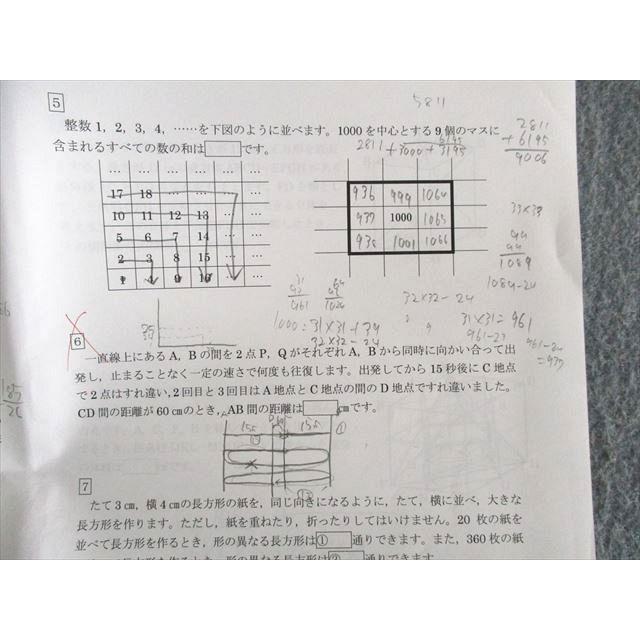 5
5811
整数 1, 2, 3, 4, ……を下図のように並べます。1000 を中心とする 9 個のマスに
含まれるすべての数の和は です。
2811
+6195
9006
2811 + 3000 + 3195
… … … … … …
17 18 … … … …
10 11 12 13 … …
5 6 7 14 … …
2 3 8 15 … …
1 4 9 16 … …
936 999 1064
937 1000 1065
938 1001 1066
33×33
1089
1089-24
961
32×32-24
1000=31×31+39
32×32-24
31×31=961
=937
6
一直線上にある A, B の間を 2 点 P, Q がそれぞれ A, B から同時に向かい合って出
発し, 止まることなく一定の速さで何度も往復します。出発してから 15 秒後に C 地点
で 2 点はすれ違い, 2 回目と 3 回目は A 地点と C 地点の間の D 地点ですれ違いました。
CD 間の距離が 60 cm のとき, AB 間の距離は cm です。
7
たて 3 cm, 横 4 cm の長方形の紙を, 同じ向きになるように, たて, 横に並べ, 大きな
長方形を作ります。ただし, 紙を重ねたり, 折ったりしてはいけません。20 枚の紙を
並べて長方形を作るとき, 形の異なる長方形は ① 通りできます。また, 360 枚の紙